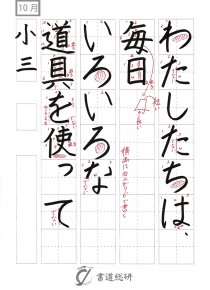 10月
わたしたちは、
毎日
いろいろな
道具を使って
小三
書道総研